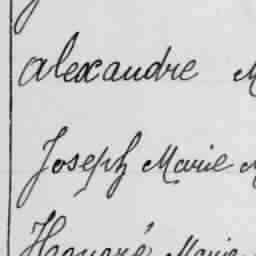 Alexandre
Joseph Marie
Honoré Marie